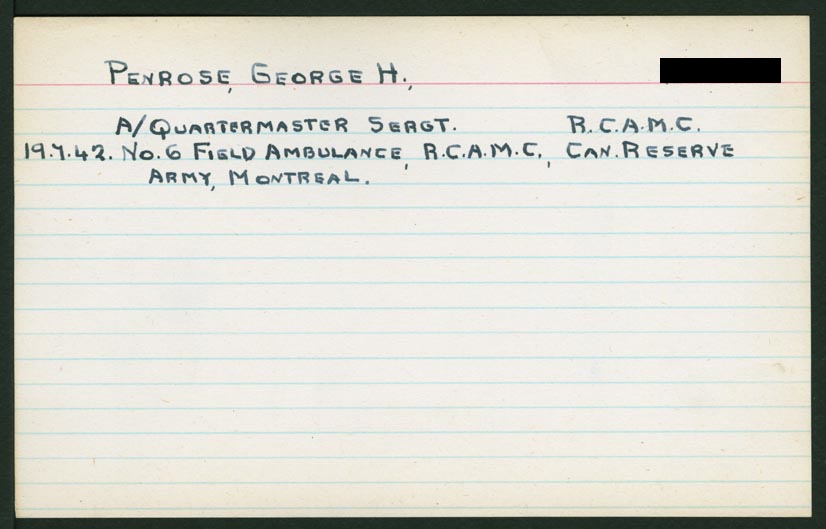 PENROSE, GEORGE H.,
A/QUARTERMASTER SERGT. R.C.A.M.C.
19.7.42. No. 6 FIELD AMBULANCE, R.C.A.M.C., CAN. RESERVE
ARMY, MONTREAL.